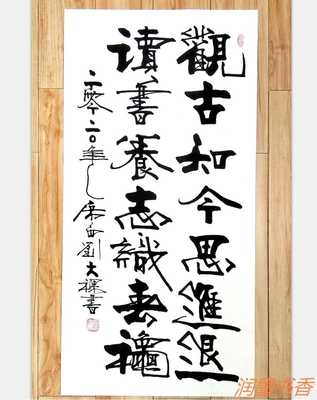 觀古知今思進退
讀書養志識春穐
二零二〇年劉大書
润墨书香